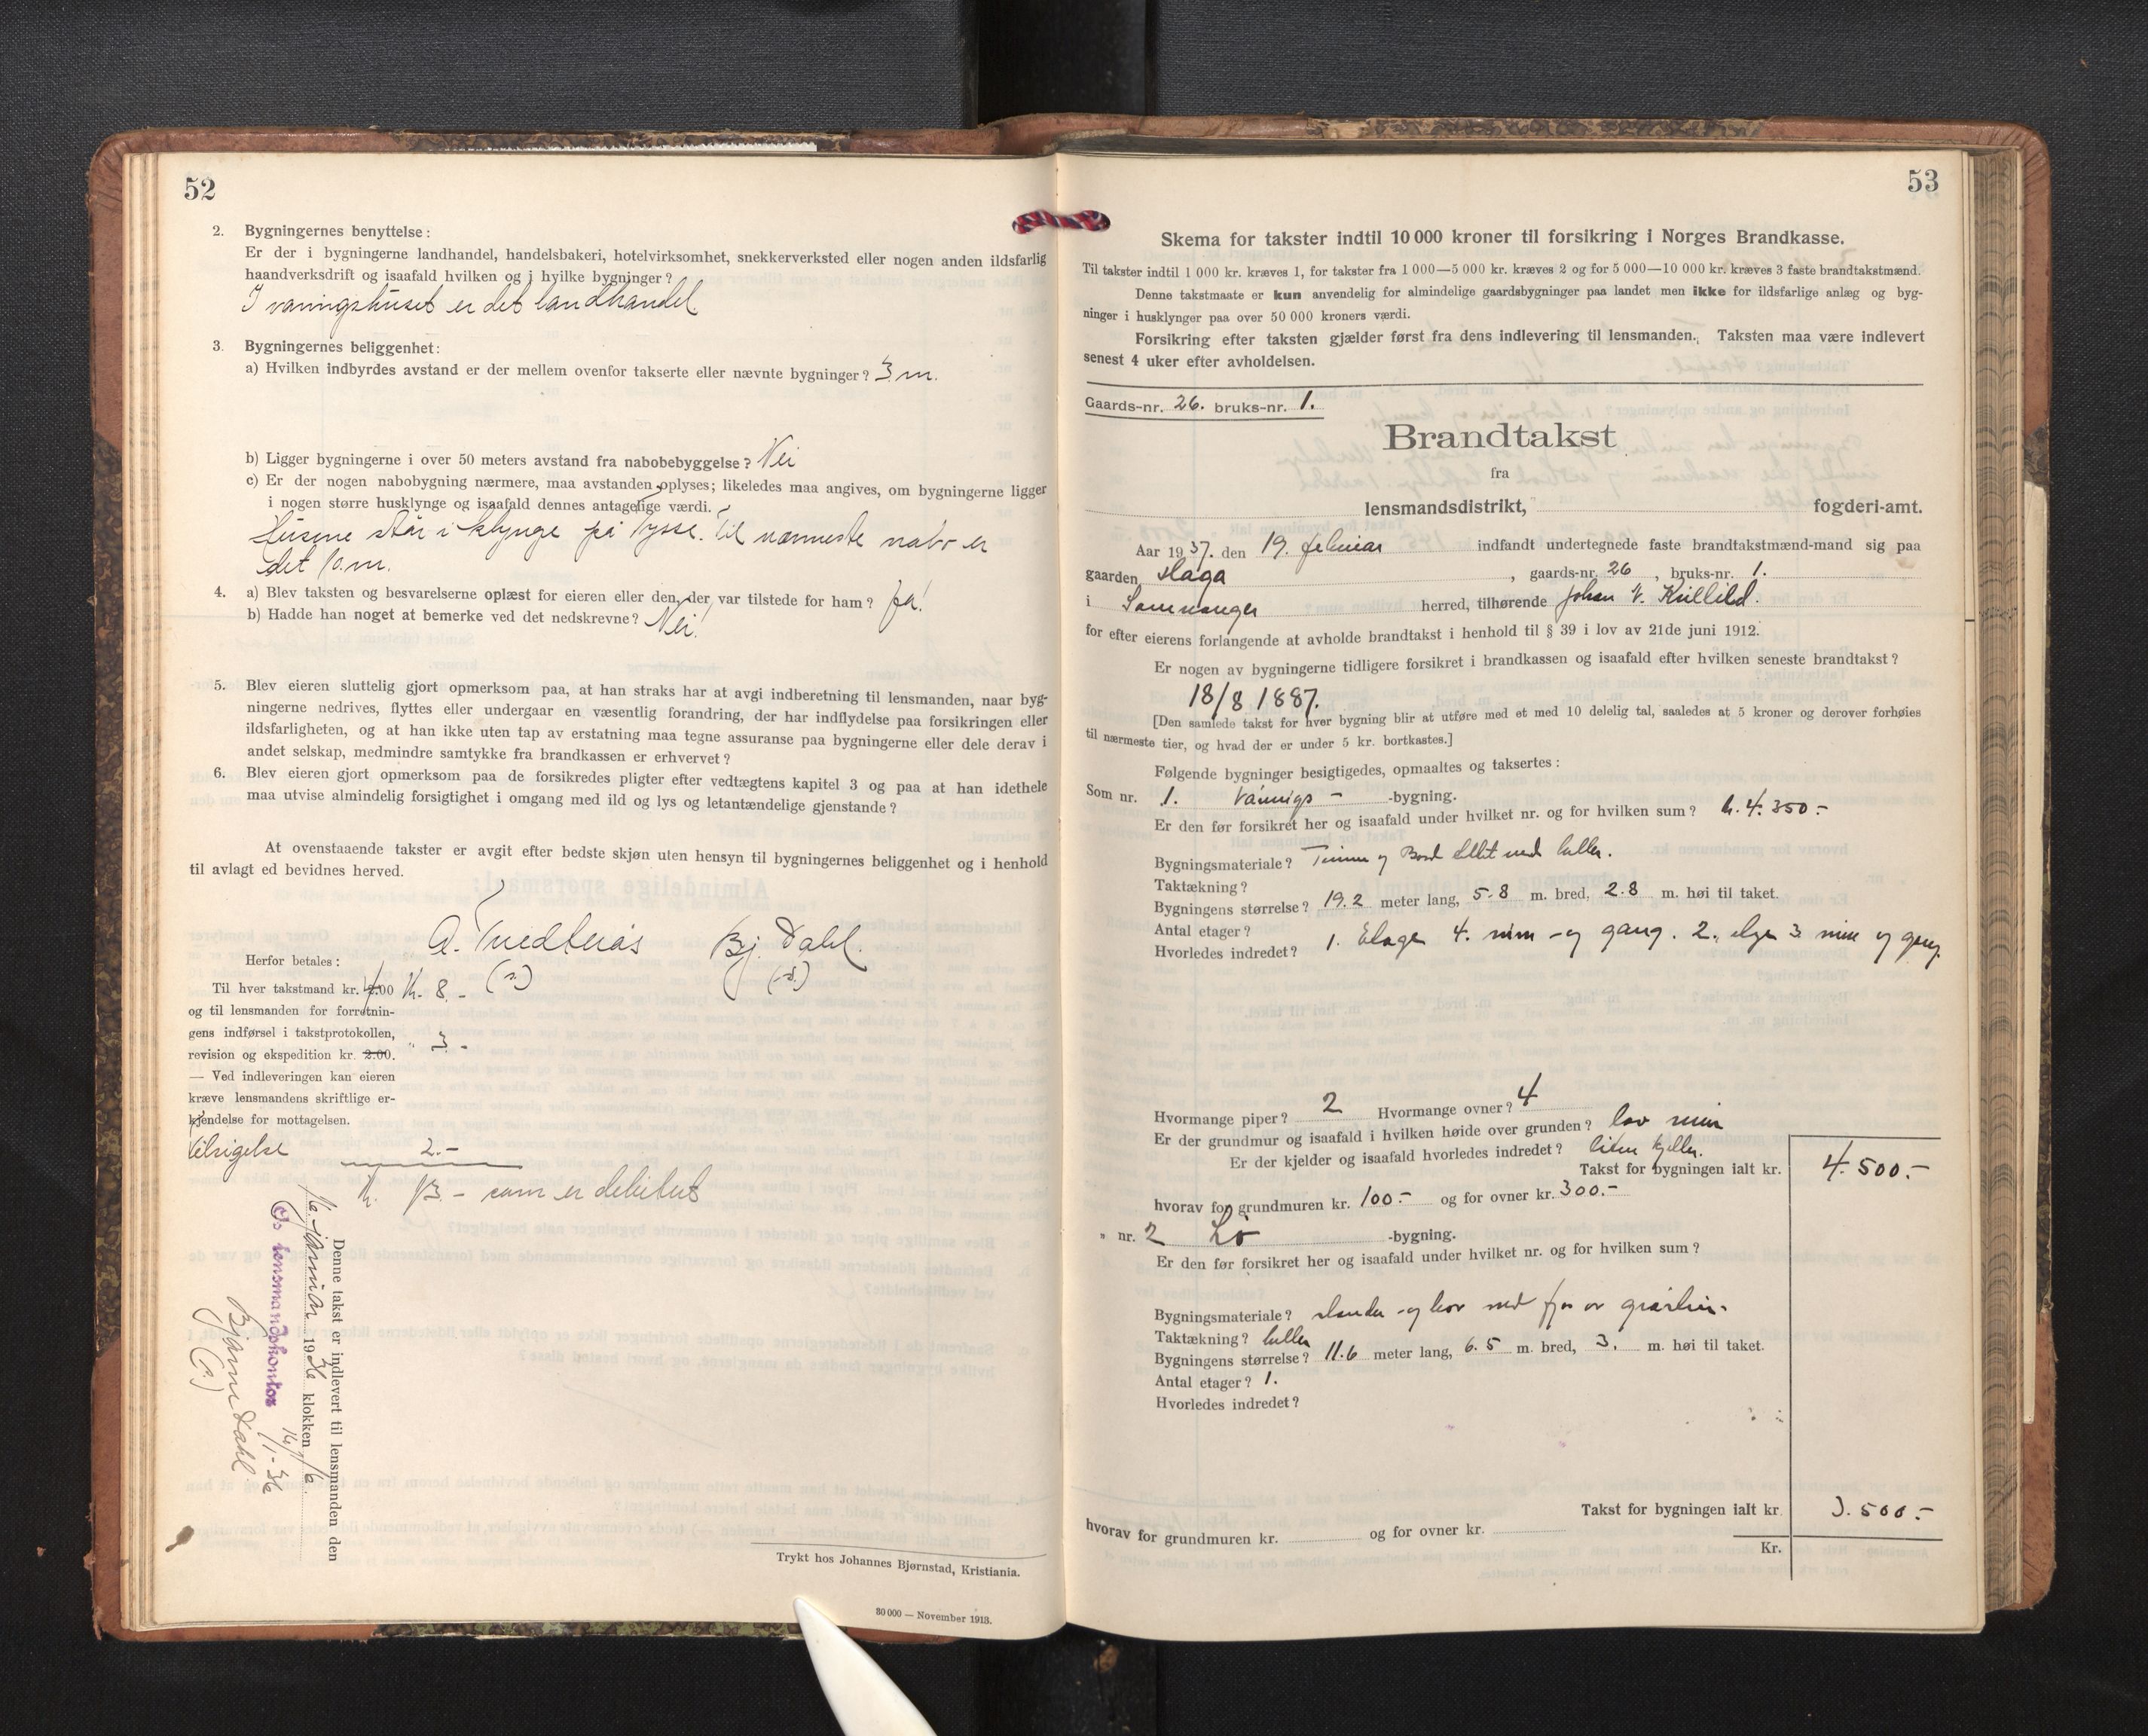 52
2. Bygningernes benyttelse:
Er der i bygningerne landhandel, handelsbakeri, hotelvirksomhet, snekkerverksted eller nogen anden ildsfarlig
haandverksdrift og isaafald hvilken og i hvilke bygninger?
I våningshuset er det landhandel
3. Bygningernes beliggenhet:
a) Hvilken indbyrdes avstand er der mellem ovenfor takserte eller nævnte bygninger? 3 m.
b) Ligger bygningerne i over 50 meters avstand fra nabobebyggelse? Nei
c) Er der nogen nabobygning nærmere, maa avstanden oplyses; likeledes maa angives, om bygningerne ligger
i nogen større husklynge og isaafald dennes antagelige værdi.
Husene står i klynge på Tysse. Til nærmeste nabo er
det 10 m.
4. a) Blev taksten og besvarelserne oplæst for eieren eller den, der var tilstede for ham? Ja!
b) Hadde han noget at bemerke ved det nedskrevne? Nei!
5. Blev eieren sluttelig gjort opmerksom paa, at han straks har at avgi indberetning til lensmanden, naar byg-
ningerne nedrives, flyttes eller undergaar en væsentlig forandring, der har indflydelse paa forsikringen eller
ildsfarligheten, og at han ikke uten tap av erstatning maa tegne assuranse paa bygningerne eller dele derav i
andet selskap, medmindre samtykke fra brandkassen er erhvervet?
6. Blev eieren gjort opmerksom paa de forsikredes pligter efter vedtægtens kapitel 3 og paa at han idethele
maa utvise almindelig forsigtighet i omgang med ild og lys og letantændelige gjenstande?
At ovenstaaende takster er avgit efter bedste skjøn uten hensyn til bygningernes beliggenhet og i henhold
til avlagt ed bevidnes herved.
A. Tvedterås Bj. Dahl.
(s.) (s.)
Herfor betales:
Til hver takstmand kr. 4.00 Kr. 8.-
og til lensmanden for forretnin-
gens indførsel i takstprotokollen,
revision og ekspedition kr. 2.00. " 3.-
— Ved indleveringen kan eieren
kræve lensmandens skriftlige er-
kjendelse for mottagelsen.
tilsigelse 2.-
Kr. 13.- som er debitert
Denne takst er indlevert til lensmanden den
16. januar 1936 klokken
Os lensmandskontor 14/1-36
Bjarne Dahl
(s.)
Trykt hos Johannes Bjørnstad, Kristiania.
30 000 — November 1918.
53
Skema for takster indtil 10 000 kroner til forsikring i Norges Brandkasse.
Til takster indtil 1 000 kr. kræves 1, for takster fra 1 000—5 000 kr. kræves 2 og for 5 000—10 000 kr. kræves 3 faste brandtakstmænd.
Denne takstmaate er kun anvendelig for almindelige gaardsbygninger paa landet men ikke for ildsfarlige anlæg og byg-
ninger i husklynger paa over 50 000 kroners værdi.
Forsikring efter taksten gjælder først fra dens indlevering til lensmanden. Taksten maa være indlevert
senest 4 uker efter avholdelsen.
Gaards-nr. 26. bruks-nr. 1.
Brandtakst
fra
lensmandsdistrikt, fogderi-amt.
Aar 1937. den 19. februar indfandt undertegnede faste brandtakstmænd-mand sig paa
gaarden Haga, gaards-nr. 26, bruks-nr. 1.
i Samnanger herred, tilhørende Johan V. Kvillild.
for efter eierens forlangende at avholde brandtakst i henhold til § 39 i lov av 21de juni 1912.
Er nogen av bygningerne tidligere forsikret i brandkassen og isaafald efter hvilken seneste brandtakst?
18/8 1887.
[Den samlede takst for hver bygning blir at utføre med et med 10 delelig tal, saaledes at 5 kroner og derover forhøies
til nærmeste tier, og hvad der er under 5 kr. bortkastes.]
Følgende bygninger besigtigedes, opmaaltes og taksertes:
Som nr. 1. Vånings- -bygning.
Er den før forsikret her og isaafald under hvilket nr. og for hvilken sum? kr. 4.350.-
Bygningsmateriale? Timmer og Bord med heller.
Taktækning?
Bygningens størrelse? 19.2 meter lang, 5.8 m. bred, 2.8 m. høi til taket.
Antal etager?
Hvorledes indredet? 1. Etage 4. rum og gang. 2. etge 3 rum og gang.
Hvormange piper? 2 Hvormange ovner? 4
Er der grundmur og isaafald i hvilken høide over grunden? lav mur
Er der kjelder og isaafald hvorledes indredet? liten kjeller.
Takst for bygningen ialt kr. 4.500.-
hvorav for grundmuren kr. 100.- og for ovner kr. 300.-
" nr. 2 Lø -bygning.
Er den før forsikret her og isaafald under hvilket nr. og for hvilken sum?
Bygningsmateriale? og bor med fjøs av gråstein.
Taktækning? heller
Bygningens størrelse? 11.6 meter lang, 6.5 m. bred, 3. m. høi til taket.
Antal etager? 1.
Hvorledes indredet?
Takst for bygningen ialt kr. 3.500.-
hvorav for grundmuren kr. og for ovner kr.
Kr.